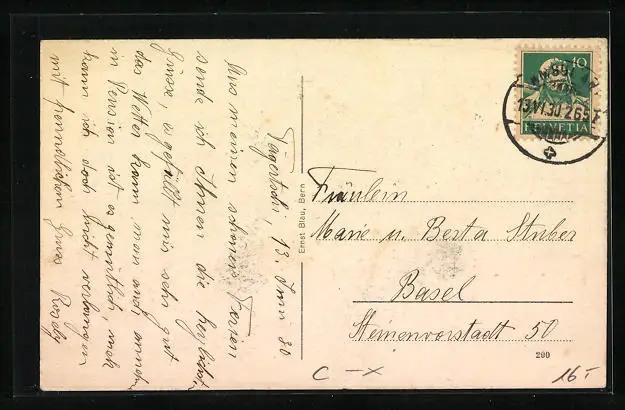 Tägertschi, 13. Juni 30.
Aus meinen schönen Ferien
sende ich Ihnen die herzlichst.
Grüsse, es gefällt mir sehr gut
das Wetter kann man auch
in Pension ist es gemütlich, mehr
kann ich doch nicht verlangen
mit freundlichem Gruss Rosely
Ernst Blau, Bern
10
HELVETIA
13.VI.30
Fräulein
Marie u. Berta Stuber
Basel
Steinenvorstadt 50
290
C - x
16 -